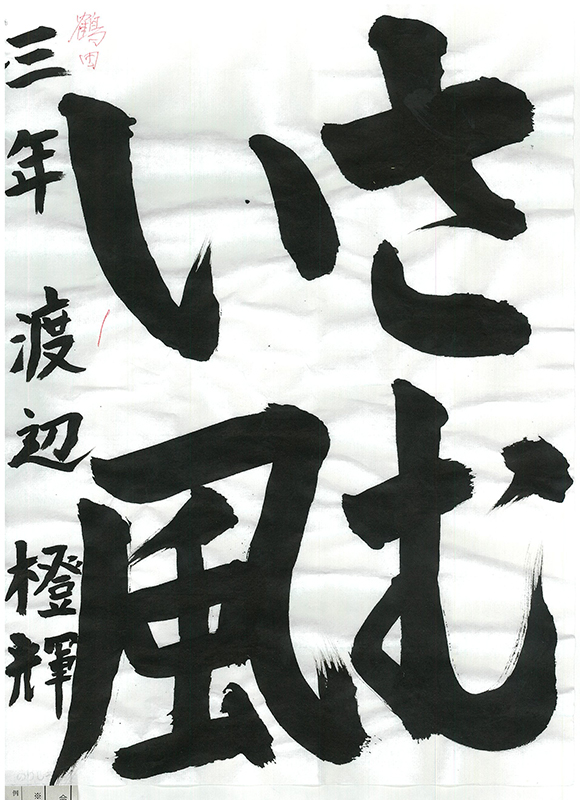 さむ
い風
三年 渡辺 橙輝
鶴田
例
※